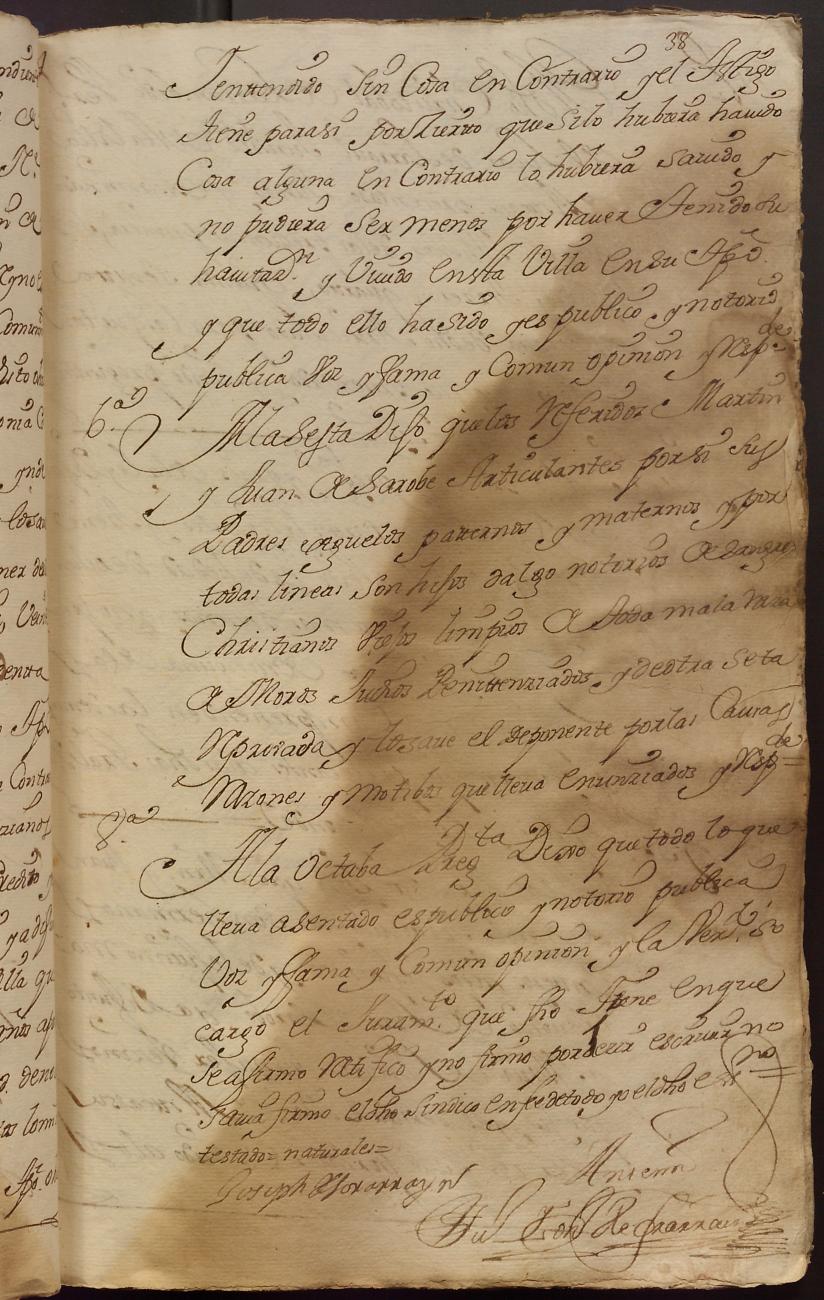 38
entendido sin Cosa en Contrario y el Testigo
tiene para si por zierto que si lo hubiera havido
Cosa alguna en Contrario lo hubiera savido y
no pudiera ser menos por haver tenido su
havitazn. y Vivido en sta Villa
y que todo ello ha sido y es publico y notorio
publica Voz y ffama y Comun opinion y Respde
6a A la Sesta Dijo que los Referidos Martin
y Juan de Sarobe Articulantes por si sus
Padres Aguelos paternos y maternos y por
todas lineas son hijos dalgo notorios de sangre
Christianos Viejos limpios de toda mala raza
de Moros Judios Penitenziados y de otra Seta
Reprovada y lo save el deponente por las Causas
Razones y Motibos que lleva enunziados y Respde=
8a
A la Octaba Pregta Dijo que todo lo que
lleva asentado es publico y notorio publica
Voz y ffama y Comun opinion y la Verd. so
cargo el Juramto que fho tiene en que
se afirmo Ratifico y no firmo por decir escrivir no
savia firmo el dho Sindico en fee de todo yo el dho essno=
testado= naturales=
Joseph
Antemi